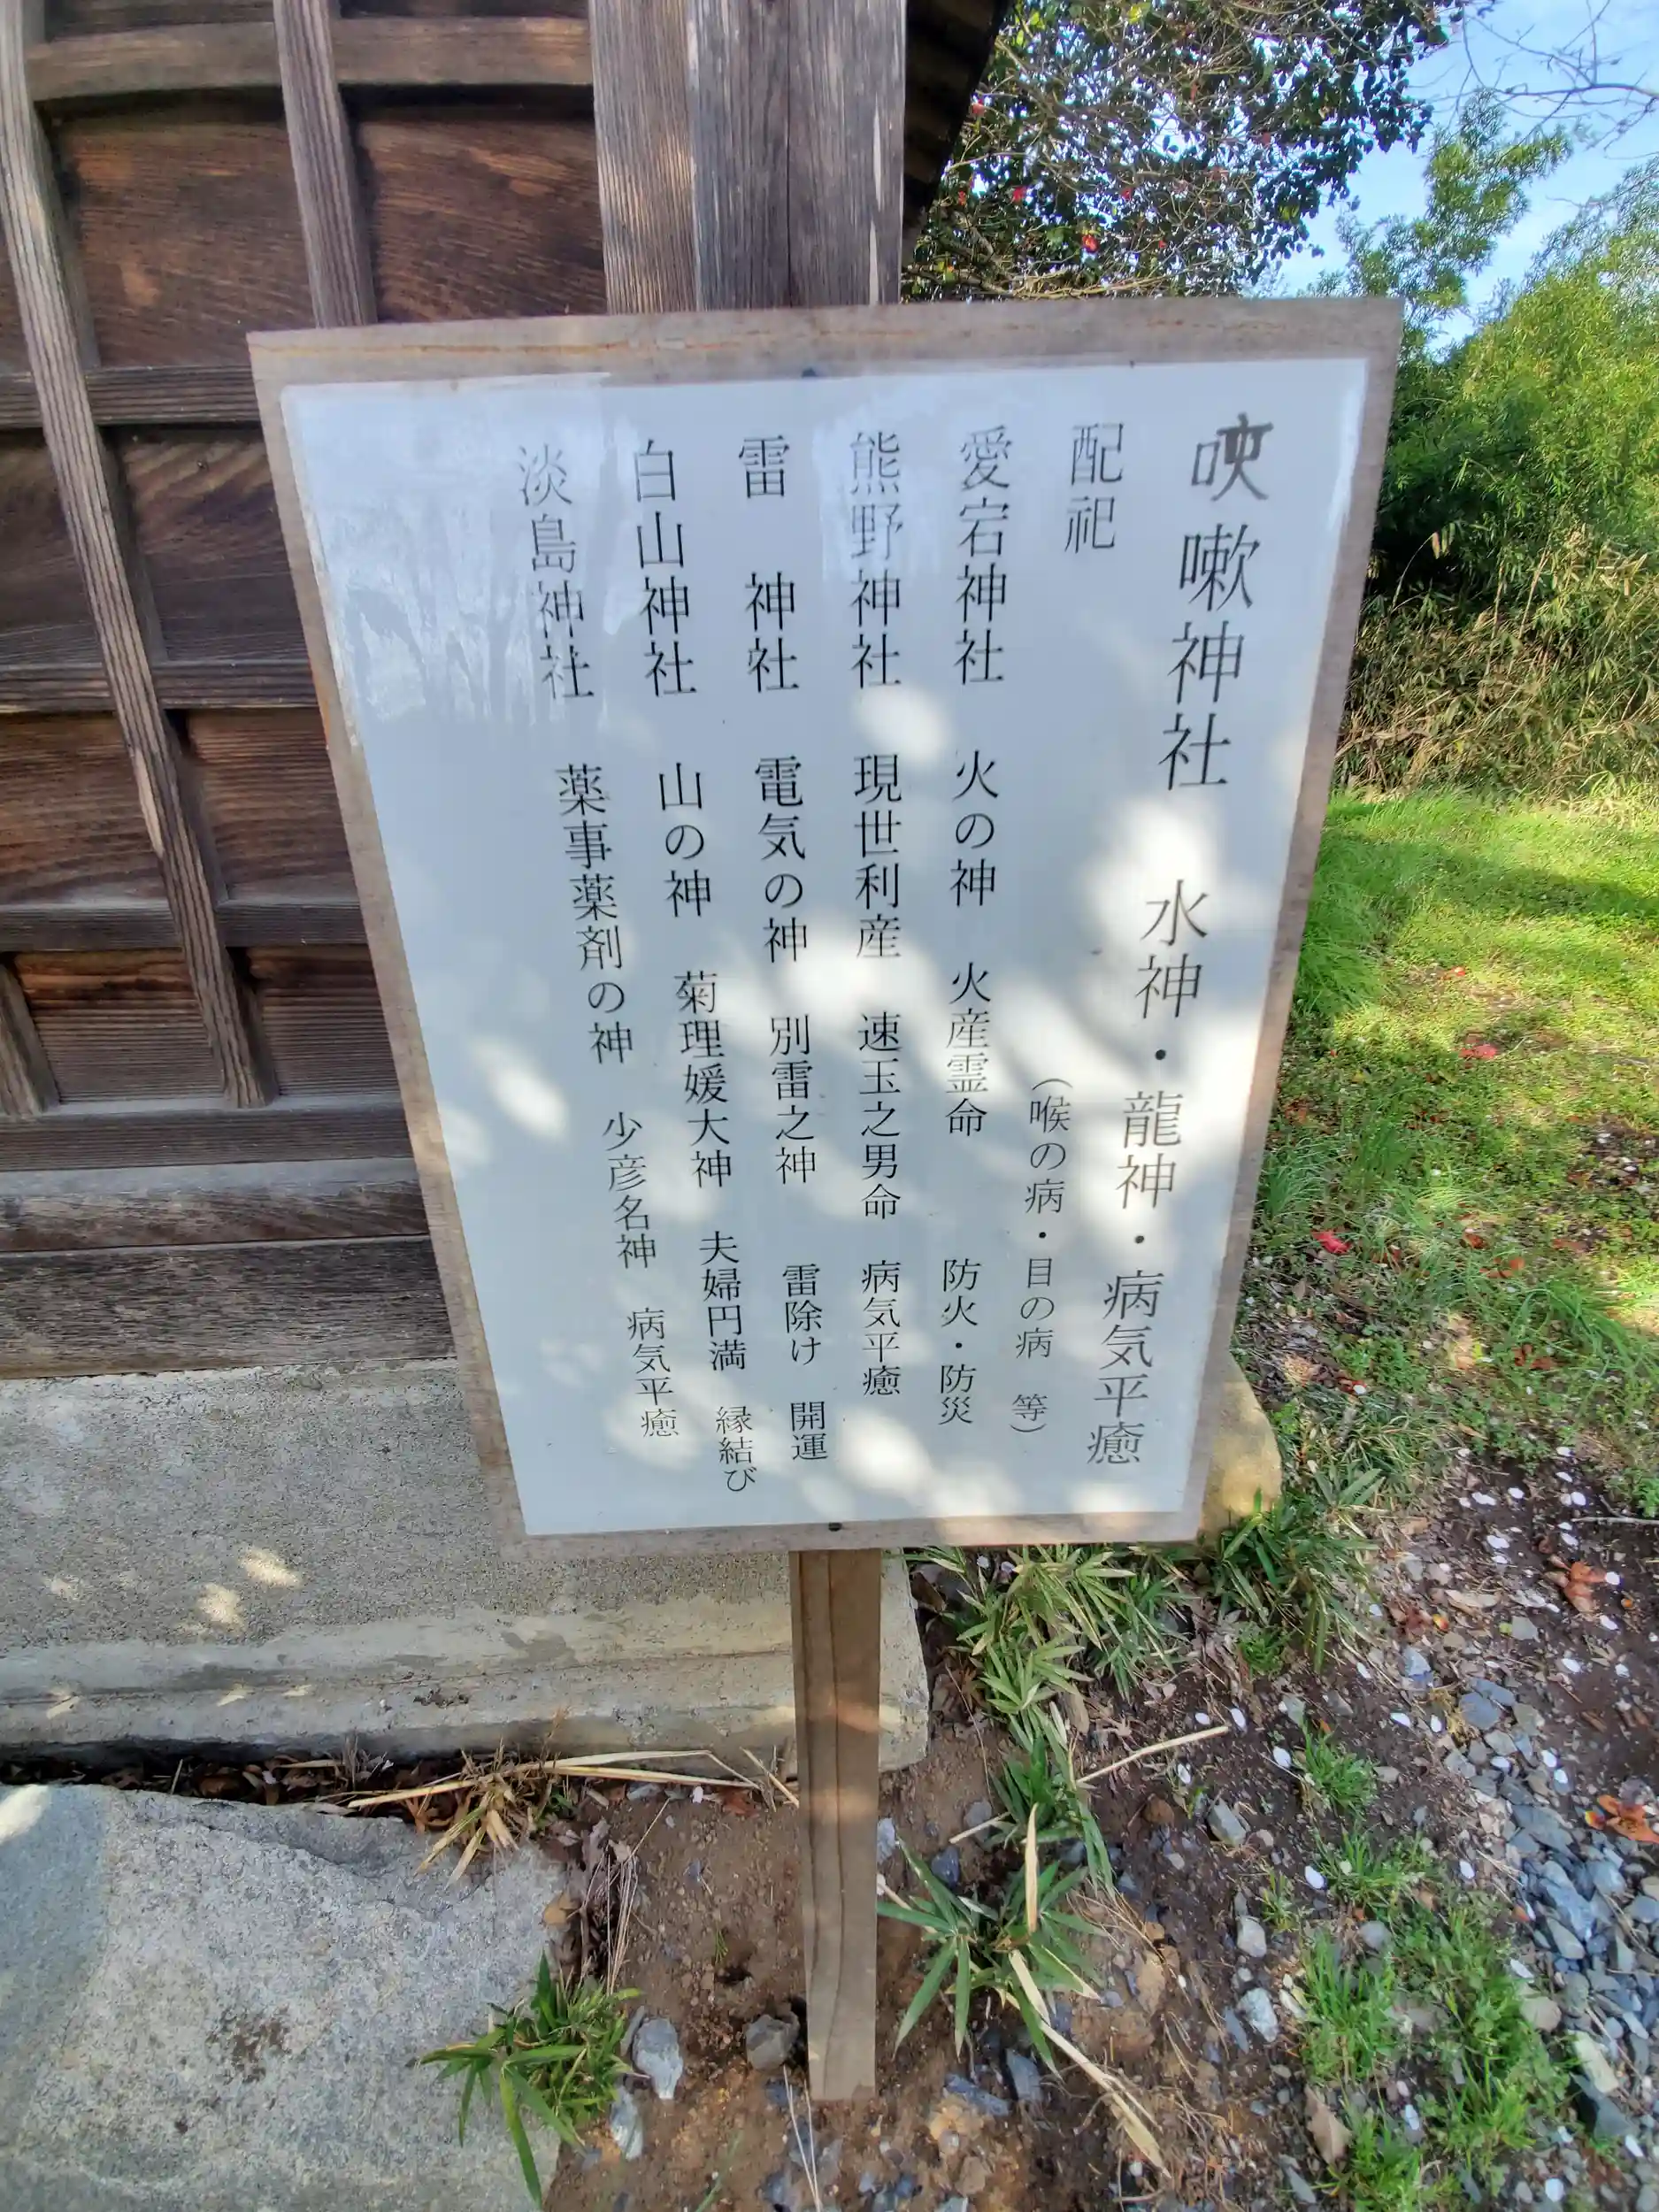 咳嗽神社 水神・龍神・病気平癒
(喉の病・目の病 等)
配祀
愛宕神社 火の神 火産霊命 防火・防災
熊野神社 現世利産 速玉之男命 病気平癒
雷 神社 電気の神 別雷之神 雷除け 開運
白山神社 山の神 菊理媛大神 夫婦円満 縁結び
淡島神社 薬事薬剤の神 少彦名神 病気平癒